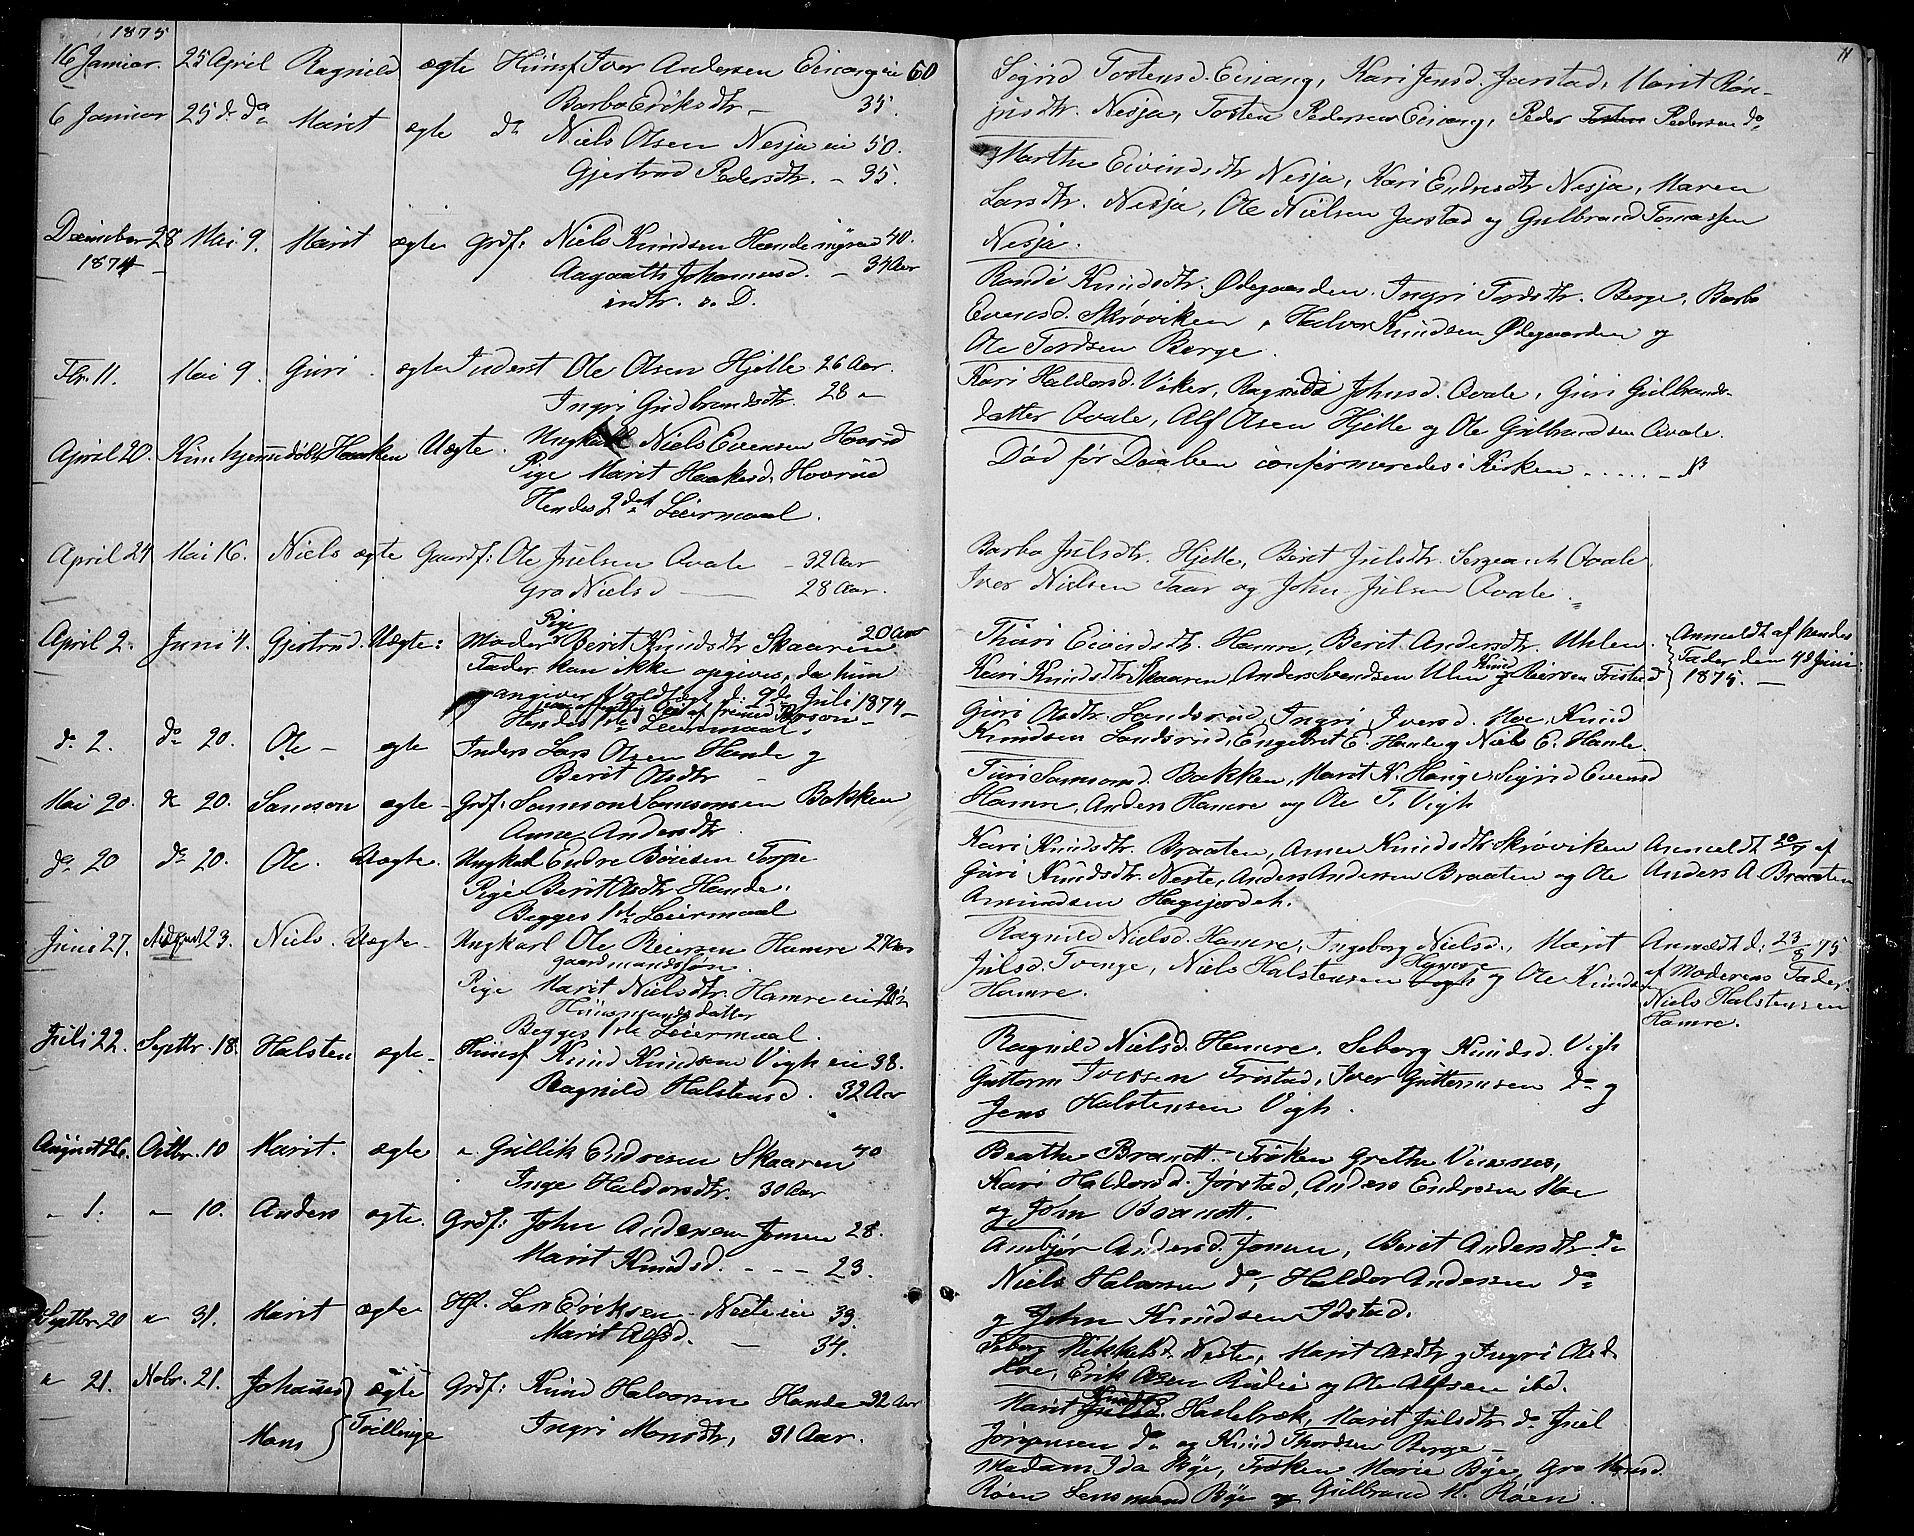 1875
16 Januar. 25 April Ragnild ægte Huusf Iver Andersen Eivang 60
Barbo Eriksdtr — 35.
6 Januar 25 d. do Marit ægte do Niels Olsen Nesja 50.
Gjertrud Pedersdtr. — 35.
December 28 Mai 9. Marit ægte Grdf: Niels Knudsen Handemyren 40.
1874 — Johannesd. — 34 Aar
indtr. s. D.
Fbr. 11. Mai 9. Guri ægte Inderst Ole Olsen Hjelle 26 Aar.
Ingri Gudbrandsdtr. 28 "
April 20. Haaken Uægte. Ungkarl Niels Evensen Hovrud
Pige Marit Haakesd. Hovrud
Hendes 2det Leiermaal.
April 24 Mai 16. Niels ægte Gaardf: Ole Juelsen Qvale — 32 Aar
Gro Nielsd — 28 Aar.
April 2. Juni 4. Gjertrud. Uægte: Moder Pige Berit Knudsdtr Skaaren 20 Aar
Fader kan ikke opgives, da hun
angiver Voldtægt d. 9de Juli 1874 —
Hendes 1ste Leiermaal.
d. 2. do 20. Ole — ægte Inders Lars Olsen Hande og
Berit Olsdtr —
Mai 20. do 20. Samson ægte — Grdf: Samson Samsonsen Bakken
Anne Andersdtr.
do 20 do 20. Ole. Uægte. Ungkarl Endre Torpe
Pige Berit Olsdtr Hande.
Begges 1ste Leiermaal
Juni 27. August 23. Niels. Uægte — Ungkarl Ole Beiersen Hamre 27 Aar
gaardmandssøn.
Pige Marit Nielsdtr. Hamre
Huusmandsdatter
Begges 1ste Leiermaal.
Juli 22. Septbr. 18. Halsten ægte — Huusf Knud Knudsen Vigh 38.
Ragnild Halstensd. 32 Aar
August 26. Octbr. 10 Marit. ægte " Gullik Endresen Skaaren 40
Inge Haldorsdtr. 30 Aar
" 1. " 10. Anders ægte. Grdf: John Andersen Jomen 28.
Marit Knudsd. - - - 23.
Septbr 20 " 31. Marit ægte Hf. Lars Eriksen Neste 39.
Marit Alfsd. — 34.
" 21. Nobr. 21. Johannes ægte Grdf: Knud Halvorsen Hande 32 Aar
Mons Tvillinge Ingri Monsdtr. 31 Aar.
11
Sigrid Tostensd. Eivang, Kari Jensd. Jarstad, Marit
Nesja, Tosten Pedersen Eivang, Peder Tosten Pedersen do
Marthe Eivindsdtr Nesja, Kari Endresdtr Nesja, Maren
Larsdtr. Nesja, Ole Nielsen Jarstad og Gulbrand Tomassen
Nesja.
Randi Knudsdtr. Ødegaarden. Ingri Tordsdtr. Berge, Barbo
Evensd. Skrøviken, Halvor Knudsen Ødegaarden og
Ole Tordsen Berge.
Kari Haldorsd. Viker, Ragnild Johnsd. Qvale, Guri Gulbrands-
datter Qvale, Alf Olsen Hjelle og Ole Gulbrandsen Qvale.
Død før Daaben confirmeredes i Kirken . . . . . .
Barbo Julsdtr. Hjelle, Berit Julsdtr. Sergeant Qvale
Iver Nielsen Faar og John Julsen Qvale.
Thuri Eivindsdtr. Hamre, Berit Andersdtr. Uhlen. Anmeldt af hendes
Kari Knudsdtr Skaaren, Anders Svendsen Ulen og Knud Fristad Fader den 4de Juni
1875. —
Guri Olsdtr. Sandsrud, Ingri Iversd. Moe, Knud
Knudsen Sandsrud, Engebret E. Hande og Niels E. Hande.
Turi Samsonsd. Bakken, Marit K. Hauge, Sigrid Evensd
Hamre, Anders Hamre og Ole T. Vigh
Kari Knudsdtr. Braaten, Anne Knudsdtr Skrøviken Anmeldt af
Guri Knudsdtr. Neste, Anders Andersen Braaten og Ole Anders A. Braaten
Amundsen Hagejordet.
Ragnild Nielsd. Hamre, Ingeborg Nielsd., Marit Anmeldt d. 23/8 75
Julsd. Tvenge, Niels Halstensen og Ole Knudsen af Moderens Fader
Hamre. Niels Halstensen
Hamre.
Ragnild Nielsd. Hamre, Seborg Knudsd. Vigh
Guttorm Iversen Fristad, Iver Guttormsen do og
Jens Halstensen Vigh.
Beathe Brandt Frøken Grethe
Kari Haldorsd. Jørstad, Anders Endresen Moe
og John Brandt.
Andersd. Jomen, Berit Andersdtr. do
Niels Halvorsen do, Haldor Andersen do
og John Knudsen Idstad.
Seborg Mikkelsd. Neste, Marit Olsdtr og Ingri Olsd.
Moe, Erik Olsen og Ole Alfsen ibd.
Marit Knudsd. Haslebræk, Marit Julsdtr. do Juel
Jørgensen do og Knud Thordsen Berge —
Madam Ida Bye, Frøken Marie Bye, Gro Monsd.
Røen Lensmand Bye og Gulbrand M. Røen.